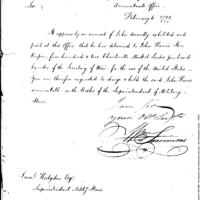 Accountants Office,
February 6 1799
Sir
It appears by an account of John Scantly exhibited and
paid at this Office that he has delivered to John Harris Store
keeper, four hundred & two Charleville Musket Locks, purchased by
order of the Secretary of War, for the use of the United States.
You are therefore requested to charge & hold the said John Harris
accountable on the Books of the Superintendent of Military
Stores.
I am Sir
your Obt Servt
Wm Simmons
Saml Hodgdon Esqr
Superintendent Mility Stores.